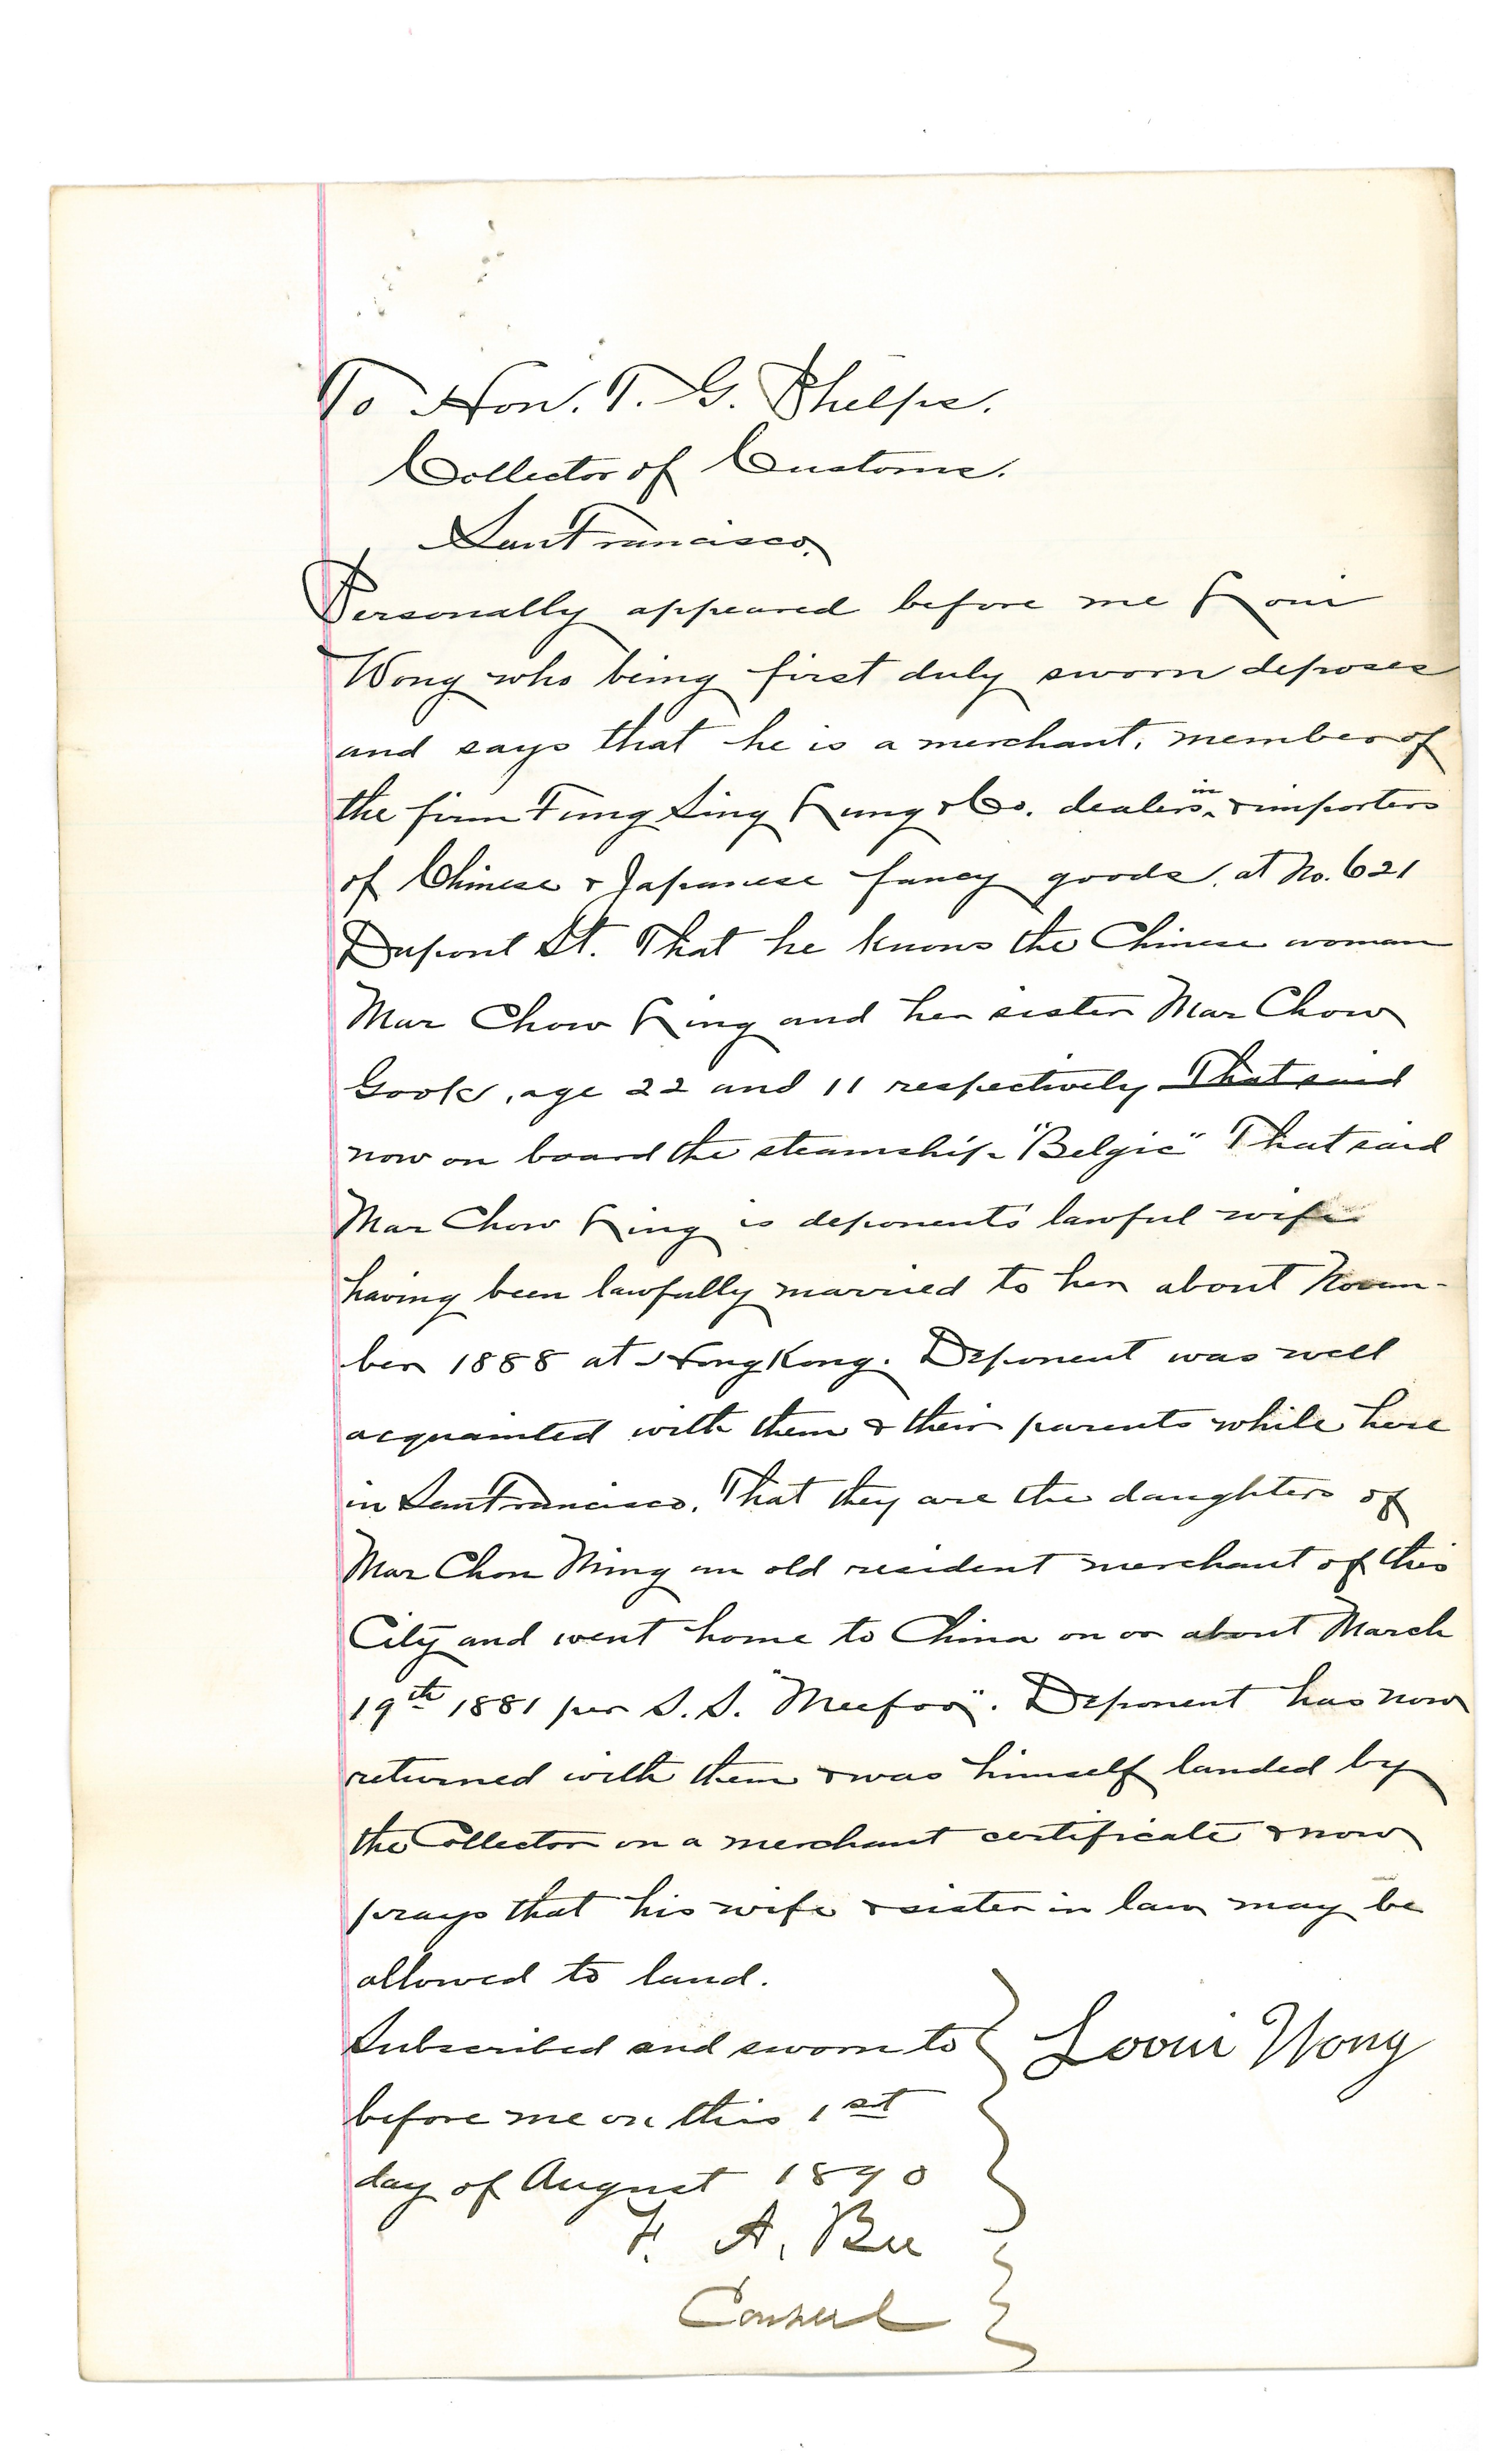 To Hon. T. G. Phelps.
Collector of Customs.
San Francisco,
Personally appeared before me Loui
Wong who being first duly sworn deposes
and says that he is a merchant, member of
the firm Fung Sing Lung & Co. dealers in & importers
of Chinese & Japanese fancy goods, at No. 621
Dupont St. That he knows the Chinese woman
Mar Chow Ling and her sister Mar Chow
Gook, age 22 and 11 respectively That said
now on board the steamship "Belgic" That said
Mar Chow Ling is deponents' lawful wife
having been lawfully married to her about Novem-
ber 1888 at HongKong. Deponent was well
acquainted with them & their parents while here
in San Francisco. That they are the daughters of
Mar Chon Ming an old resident merchant of this
City and went home to China on or about March
19th 1881 per S.S. "Meefoo". Deponent has now
returned with them & was himself landed by
the Collector on a merchant certificate & now
prays that his wife & sister in law may be
allowed to land.
Subscribed and sworn to
before me on this 1st
day of August 1890
Looui Wong
F. A. Bee
Consul